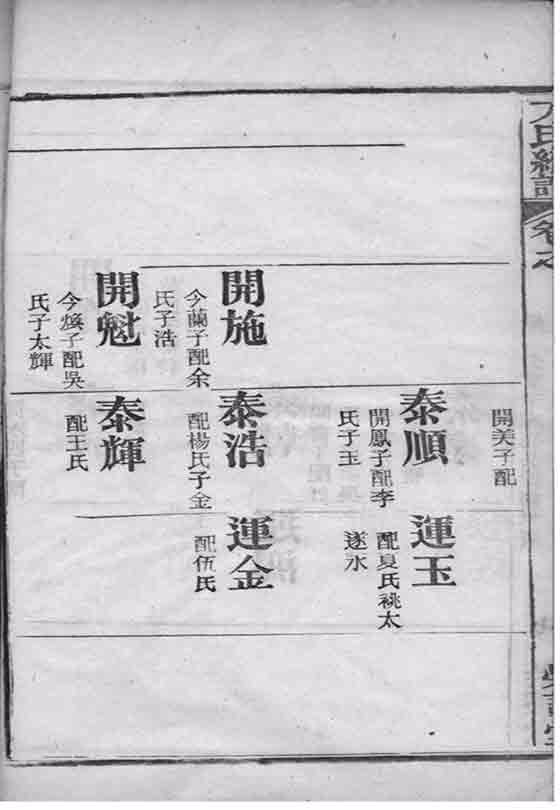 卷之
開施
今蘭子配余
氏子浩
開魁
今煥子配吳
氏子太輝
開美子配
泰順
開鳳子配李
氏子玉
泰浩
配楊氏子金
泰輝
配王氏
運玉
配夏氏祧太
遂水
運金
配伍氏